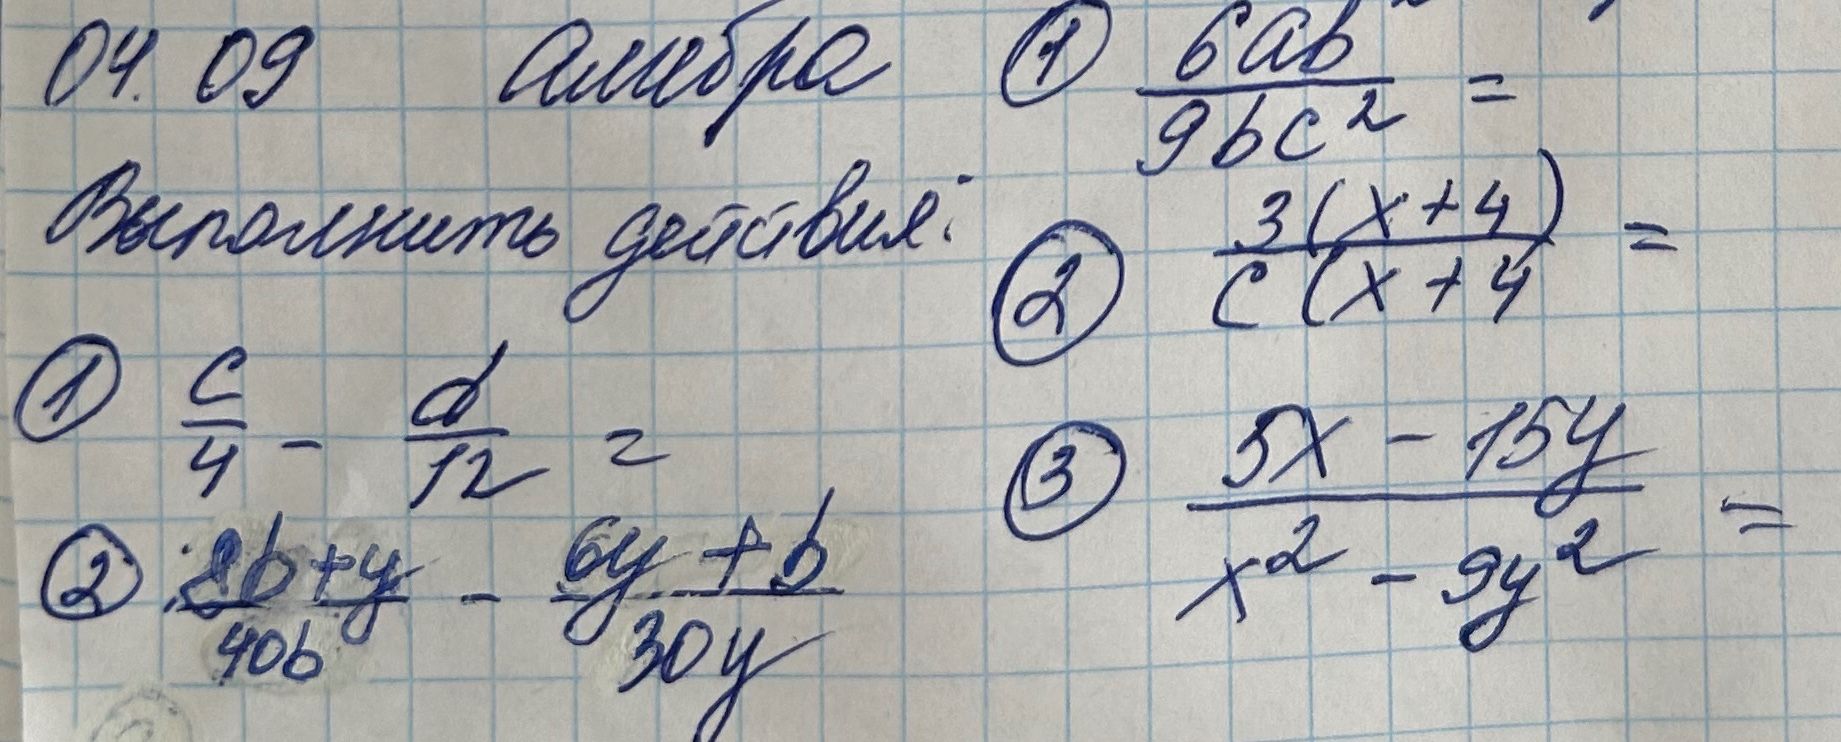 04.09 Алгебра
Выполнить действия:
① c/4 - d/12 =
② (8b+y)/40b - (6y+b)/30y
① 6ab/9bc² =
② 3(x+4)/c(x+4 =
③ (5x - 15y)/(x² - 9y²) =